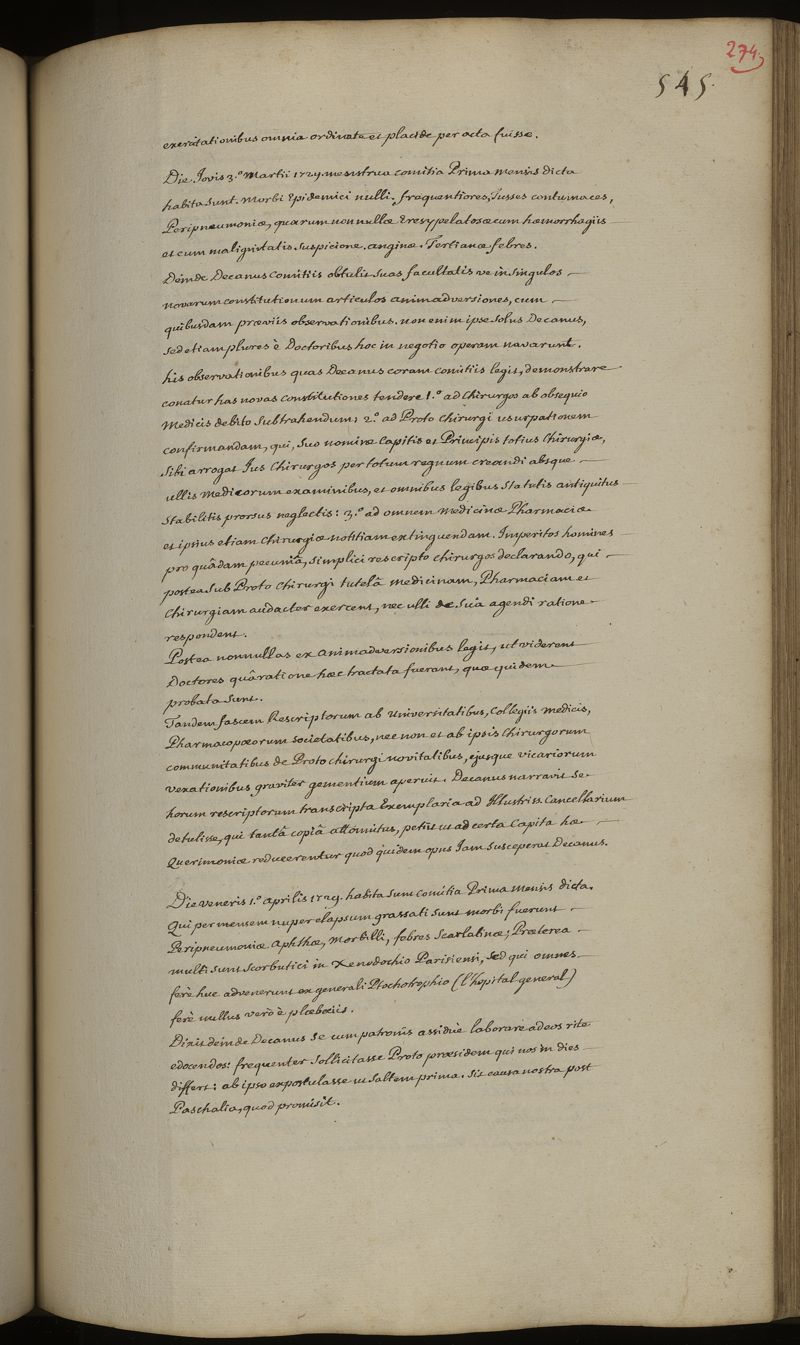 274
545.
exercitationibus omnia ordinate et placide per acta fuisse.
Die Jovis 3.º Martii 1729 menstrua comitia Prima mensis dicta
habita sunt. Morbi Epidemici nulli. frequentiores, Tusses contumaces,
Peripneumoniæ, quarum non nullæ Eresypelatosæ cum hæmorrhagiis
et cum malignitatis suspicione. anginæ. Tertianæ febres.
Deinde Decanus comitiis obtulit suas facultatis ve in singulos
novarum constitutionum articulos animadversiones, cum
quibusdam præviis observationibus. non enim ipse solus Decanus,
sed etiam plures è Doctoribus hoc in negotio operam navarunt.
his observationibus quas Decanus coram comitiis legit, demonstrare
conatur has novas constitutiones tendere 1.º ad chirurgos ab obsequio
Medicis debito subtrahendum; 2.º ad Proto chirurgi usurpationem
confirmandam, qui, suo nomine Capitis et Principis totius Chirurgiæ,
sibi arrogat Jus chirurgos per totum regnum creandi absque
ullis medicorum examinibus, et omnibus legibus statutis antiquitus
stabilitis prorsus neglectis: 3.º ad omnem medicinæ Pharmaciæ
et ipsius etiam chirurgiæ notitiam extinguendam. Imperitos homines
pro quâdam pecuniâ, simplici rescripto chirurgos declarando, qui
postea sub Proto chirurgi tutelâ medicinam, Pharmaciam et
chirurgiam audacter exercent, nec ulli de suâ agendi ratione
respondent.
Postea nonnullas ex animadversionibus legit, ut viderent
Doctores quâ ratione hæc tractata fuerant, quæ quidem
probata sunt.
Tandem fascem Rescriptorum ab Universitatibus, Collegiis medicis,
Pharmacopœorum societatibus, nec non et ab ipsis Chirurgorum
communitatibus de Proto chirurgi novitatibus, ejusque vicariorum
vexationibus graviter gementium aperuit. Decanus narravit se
horum rescriptorum transcripta Exemplaria ad Illustriss. Cancellarium
detulisse, qui tantâ copiâ attonitus, petiit ut ad certa Capita hæ
Querimoniæ reducerentur quod quidem opus Jam susceperat Decanus.
Die veneris 1.º aprilis 1729. habita sunt comitia Prima mensis dicta.
Qui per mensem nuper elapsum grassati sunt morbi fuerunt
Peripneumoniæ aphthæ, Morbilli, febres Scarlatinæ; Præterea
multi sunt scorbutici in Xenodochio Parisiensi, sed qui omnes
ferè huc advenerunt ex generali Ptochotrophio (l'hopital general)
ferè nullus verò è plæbeiis.
Dixit deinde Decanus se cum patronis assiduè laborare ad eos rite
edocendos: frequenter sollicitasse Proto præsidem qui nos in dies
differt: ab ipso expostulasse ut saltem prima. sit causa nostra post
Paschalia, quod promisit.